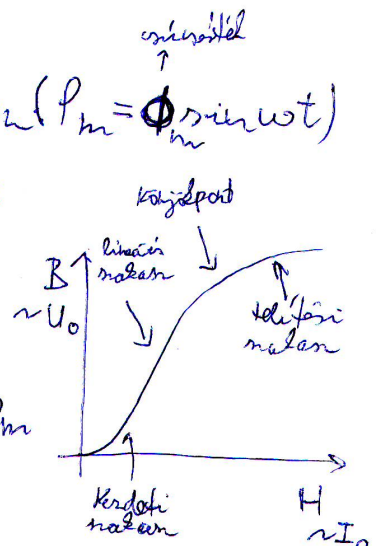 csúcsérték
(φₘ = Φₘ sin ωt)
könyökpont
lineáris
szakasz
B
~U₀
telítési
szakasz
m
kezdeti
szakasz
H
~I₀